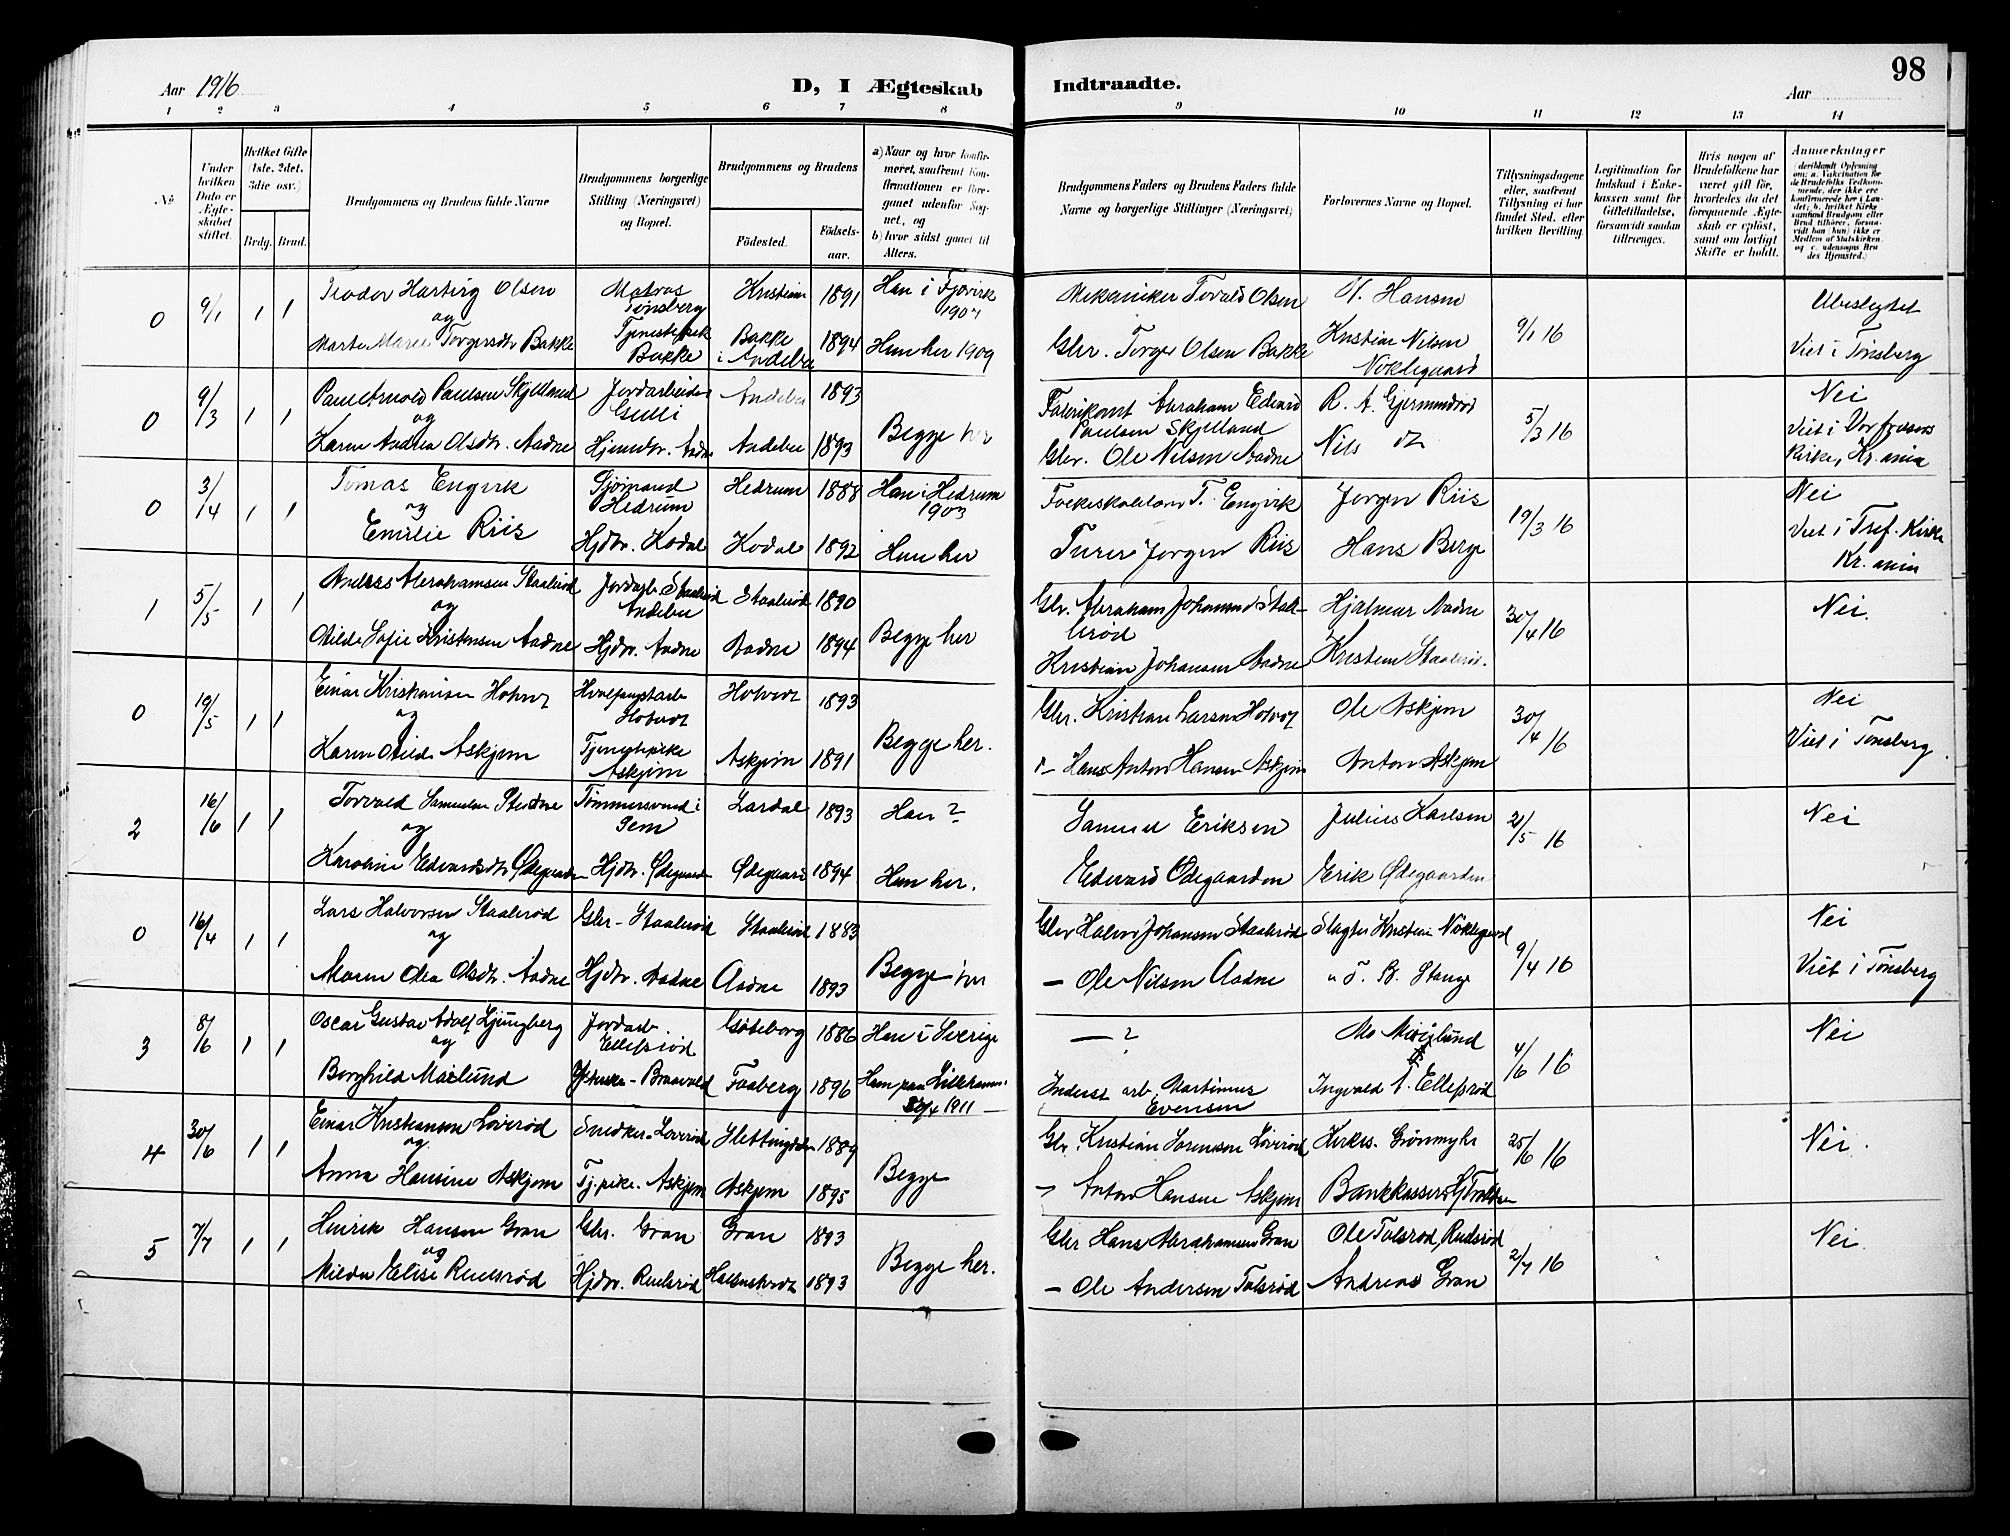 Aar 1916
D, I Ægteskab
Indtraadte.
98
Aar
1 2 3 4 5 6 7 8 9 10 11 12 13 14
No
Under hvilken Dato er Ægteskabet stiftet.
Hvilket Gifte (1ste, 2det, 3die osv.)
Brdg. Brud.
Brudgommens og Brudens fulde Navne
Brudgommens borgerlige Stilling (Næringsvei) og Bopæl.
Brudgommens og Brudens
Födested.
Födsels-aar.
a) Naar og hvor konfirmeret, saafremt Konfirmationen er foregaaet udenfor Sognet, og
b) hvor sidst gaaet til Alters.
Brudgommens Faders og Brudens Faders fulde Navne og borgerlige Stillinger (Næringsvei)
Forlovernes Navne og Bopæl.
Tillysningsdagene eller, saafremt Tillysning ei har fundet Sted, efter hvilken Bevilling.
Legitimation for Indskud i Enkekassen samt for Giftetilladelse, forsaavidt saadan tiltrænges.
Hvis nogen af Brudefolkene har været gift för, hvorledes da det foregaaende Ægteskab er oplöst, samt om lovligt Skifte er holdt.
Anmærkninger
0 9/1 1 1 Teodor Hartvig Olsen Matros Tønsberg Kristiania 1891 Han i Gjøvik 1907 Mekaniker Torvald Olsen N. Hansen 9/1 16 Ubeslegtet
og
Marte Marie Torgersdtr Bakke Tjenestepike Bakke Bakke i Andebu 1894 Hun her 1909 Gbr. Torger Olsen Bakke Kristian Nilsen Nöklegaard Viet i Tønsberg
0 9/3 1 1 Paul Arnold Paulsen Skjelland Jordarbeider Gulli Andebu 1893 Begge her Fabrikant Abraham Edvard Paulsen Skjelland R. A. Gjermundrød 5/3 16 Nei
og
Karen Andrea Olsdtr. Aadne Hjemdtr. Aadne Andebu 1893 Gbr. Ole Nilsen Aadne Nils dz Viet i Vor frelsers Kirke, Kr.ania
0 3/4 1 1 Tomas Engvik Sjømand Hedrum Hedrum 1888 Han i Hedrum 1903 Folkeskolelærer T. Engvik Jørgen Riis 19/3 16 Nei
og
Emilie Riis Hjdtr. Kodal Kodal 1892 Hun her Jørgen Riis Hans Berge Viet i Tref. Kirke Kr.ania
1 5/5 1 1 Anders Abrahamsen Staalerød Jordarb. Staalerød Andebu Staalerød 1890 Begge her Gbr. Abraham Johansen Staalerød Hjalmar Aadne 30/4 16 Nei.
og
Otilde Sofie Kristensen Aadne Hjdtr. Aadne Aadne 1894 Kristian Johansen Aadne Kristian Staalerød.
0 19/5 1 1 Einar Kristiansen Hotvedt Hvalfangstarb. Hotvedt Hotvedt 1893 Begge her. Gbr. Kristian Larsen Hotvedt Ole Askjem 30/4 16 Nei
og
Karen Otilde Askjem Tjenestepike Askjem Askjem 1891 Hans Anton Hansen Askjem Anton Askjem Viet i Tønsberg
2 16/6 1 1 Torvald Samuelsen Tømmersvend i Sem Lardal 1893 Han ? Samuel Eriksen Julius Karlsen 21/5 16 Nei
og
Karoline Edvardsdtr Ødegaarden Hjdtr. Ødegaarden Ødegaard 1894 Hun her. Edvard Ødegaarden Erik Ødegaarden
0 16/4 1 1 Lars Halvorsen Staalerød Gbr - Staalerød Staalerød 1883 Begge her Gbr Halvor Johansen Staalerød Slagter Kristian Nöklegaard 9/4 16 Nei
og
Maren Olea Olsdtr. Aadne Hjdtr. Aadne Aadne 1893 — Ole Nilsen Aadne " T. B. Stange Viet i Tønsberg
3 8/6 1 1 Oscar Gustav Adolf Ljungberg Jordarb. Ellefsrød Göteborg 1886 Han i Sverige — ? 4/6 16 Nei
og
Borghild Mælund Braavold Faaberg 1896 Hun paa Lillehammer 30/4 1911 — Inderst arb. Martinus Evensen Ingvald T. Ellefsrød
4 30/6 1 1 Einar Kristiansen Løverød Snedker - Løverød Slettingdalen 1889 Begge Gbr. Kristian Sørensen Løverød Kirkes. Grönmyhr 25/6 16 Nei.
og
Anna Hansine Askjem Tj.pike. Askjem Askjem 1895 Anton Hansen Askjem Bankkasserer
5 7/7 1 1 Henrik Hansen Gran Gbr. Gran Gran 1893 Begge her. Gbr Hans Abrahamsen Gran Ole Tolsrød, Rudsrød 2/7 16 Nei.
og
Milda Elise Rudsrød Hjdtr. Rudsrød 1893 — Ole Andersen Tolsrød Andreas Gran